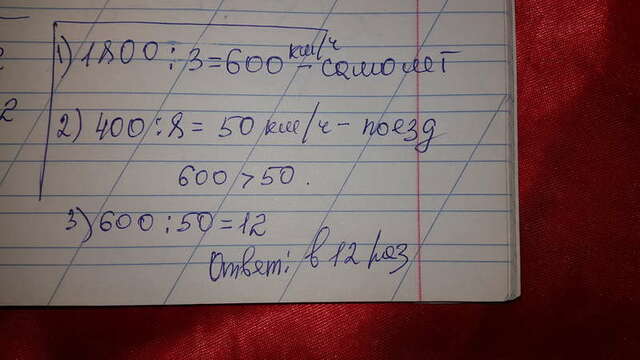 1) 1800 : 3 = 600 км/ч - самолет
2) 400 : 8 = 50 км/ч - поезд
600 > 50.
3) 600 : 50 = 12
Ответ: в 12 раз
2